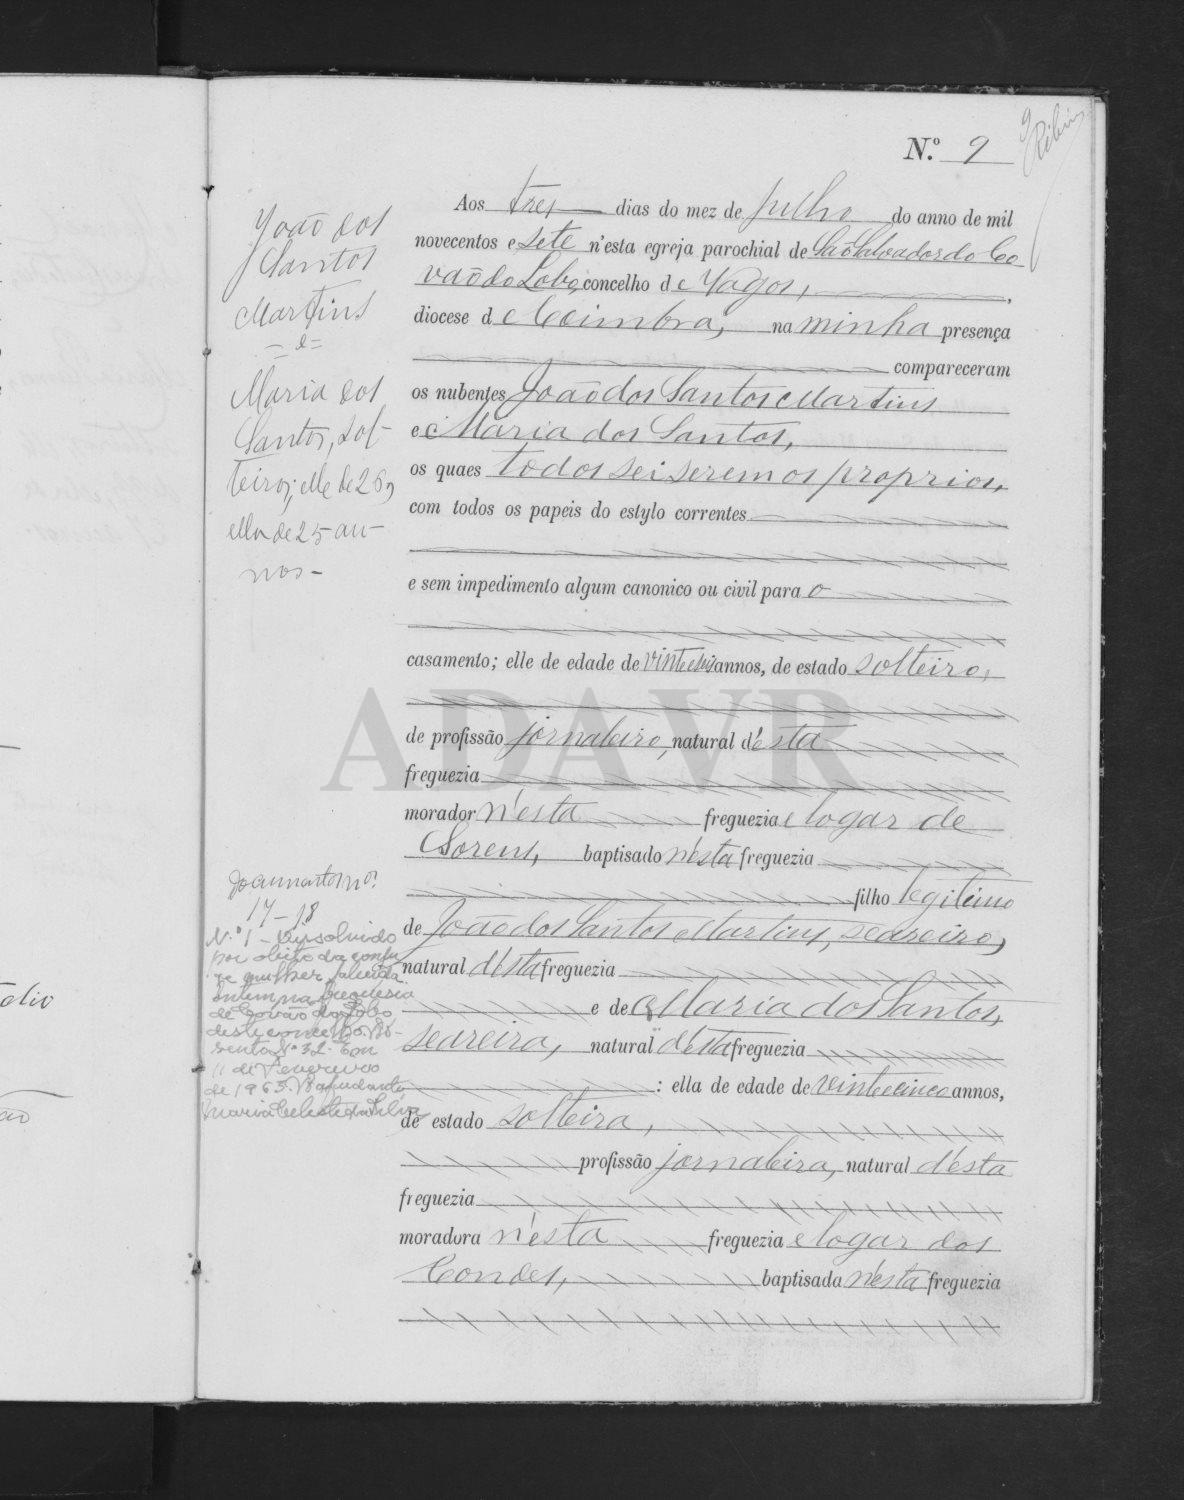 9
Ribeiro
N.º 9
João dos
Santos
Martins
= e =
Maria dos
Santos, sol-
teiros; elle de 26,
ella de 25 an-
nos -
Aos tres dias do mez de julho do anno de mil
novecentos e sete n'esta egreja parochial de São Salvador do Co
vão do Lobo, concelho de Vagos,
diocese de Coimbra, na minha presença
compareceram
os nubentes João dos Santos Martins
e Maria dos Santos,
os quaes todos sei serem os proprios,
com todos os papeis do estylo correntes
e sem impedimento algum canonico ou civil para o
casamento; elle de edade de vinte e seis annos, de estado solteiro,
de profissão jornaleiro, natural d'esta
freguezia
morador n'esta freguezia e logar de
Sorens, baptisado n'esta freguezia
filho legitimo
de João dos Santos Martins, seareiro,
natural d'esta freguezia
e de Maria dos Santos,
seareira, natural d'esta freguezia
: ella de edade de vinte e cinco annos,
de estado solteira,
profissão jornaleira, natural d'esta
freguezia
moradora n'esta freguezia e logar dos
Condes, baptisada n'esta freguezia
17-18
N.º 1 - Dissolvido
por obito da conju
ge mulher falecida
ontem na freguesia
de Covão do Lobo,
deste concelho. As-
sento Nº 32. Em
11 de Fevereiro
de 1963. A ajudante,
Maria Celeste da Silva
ADAVR